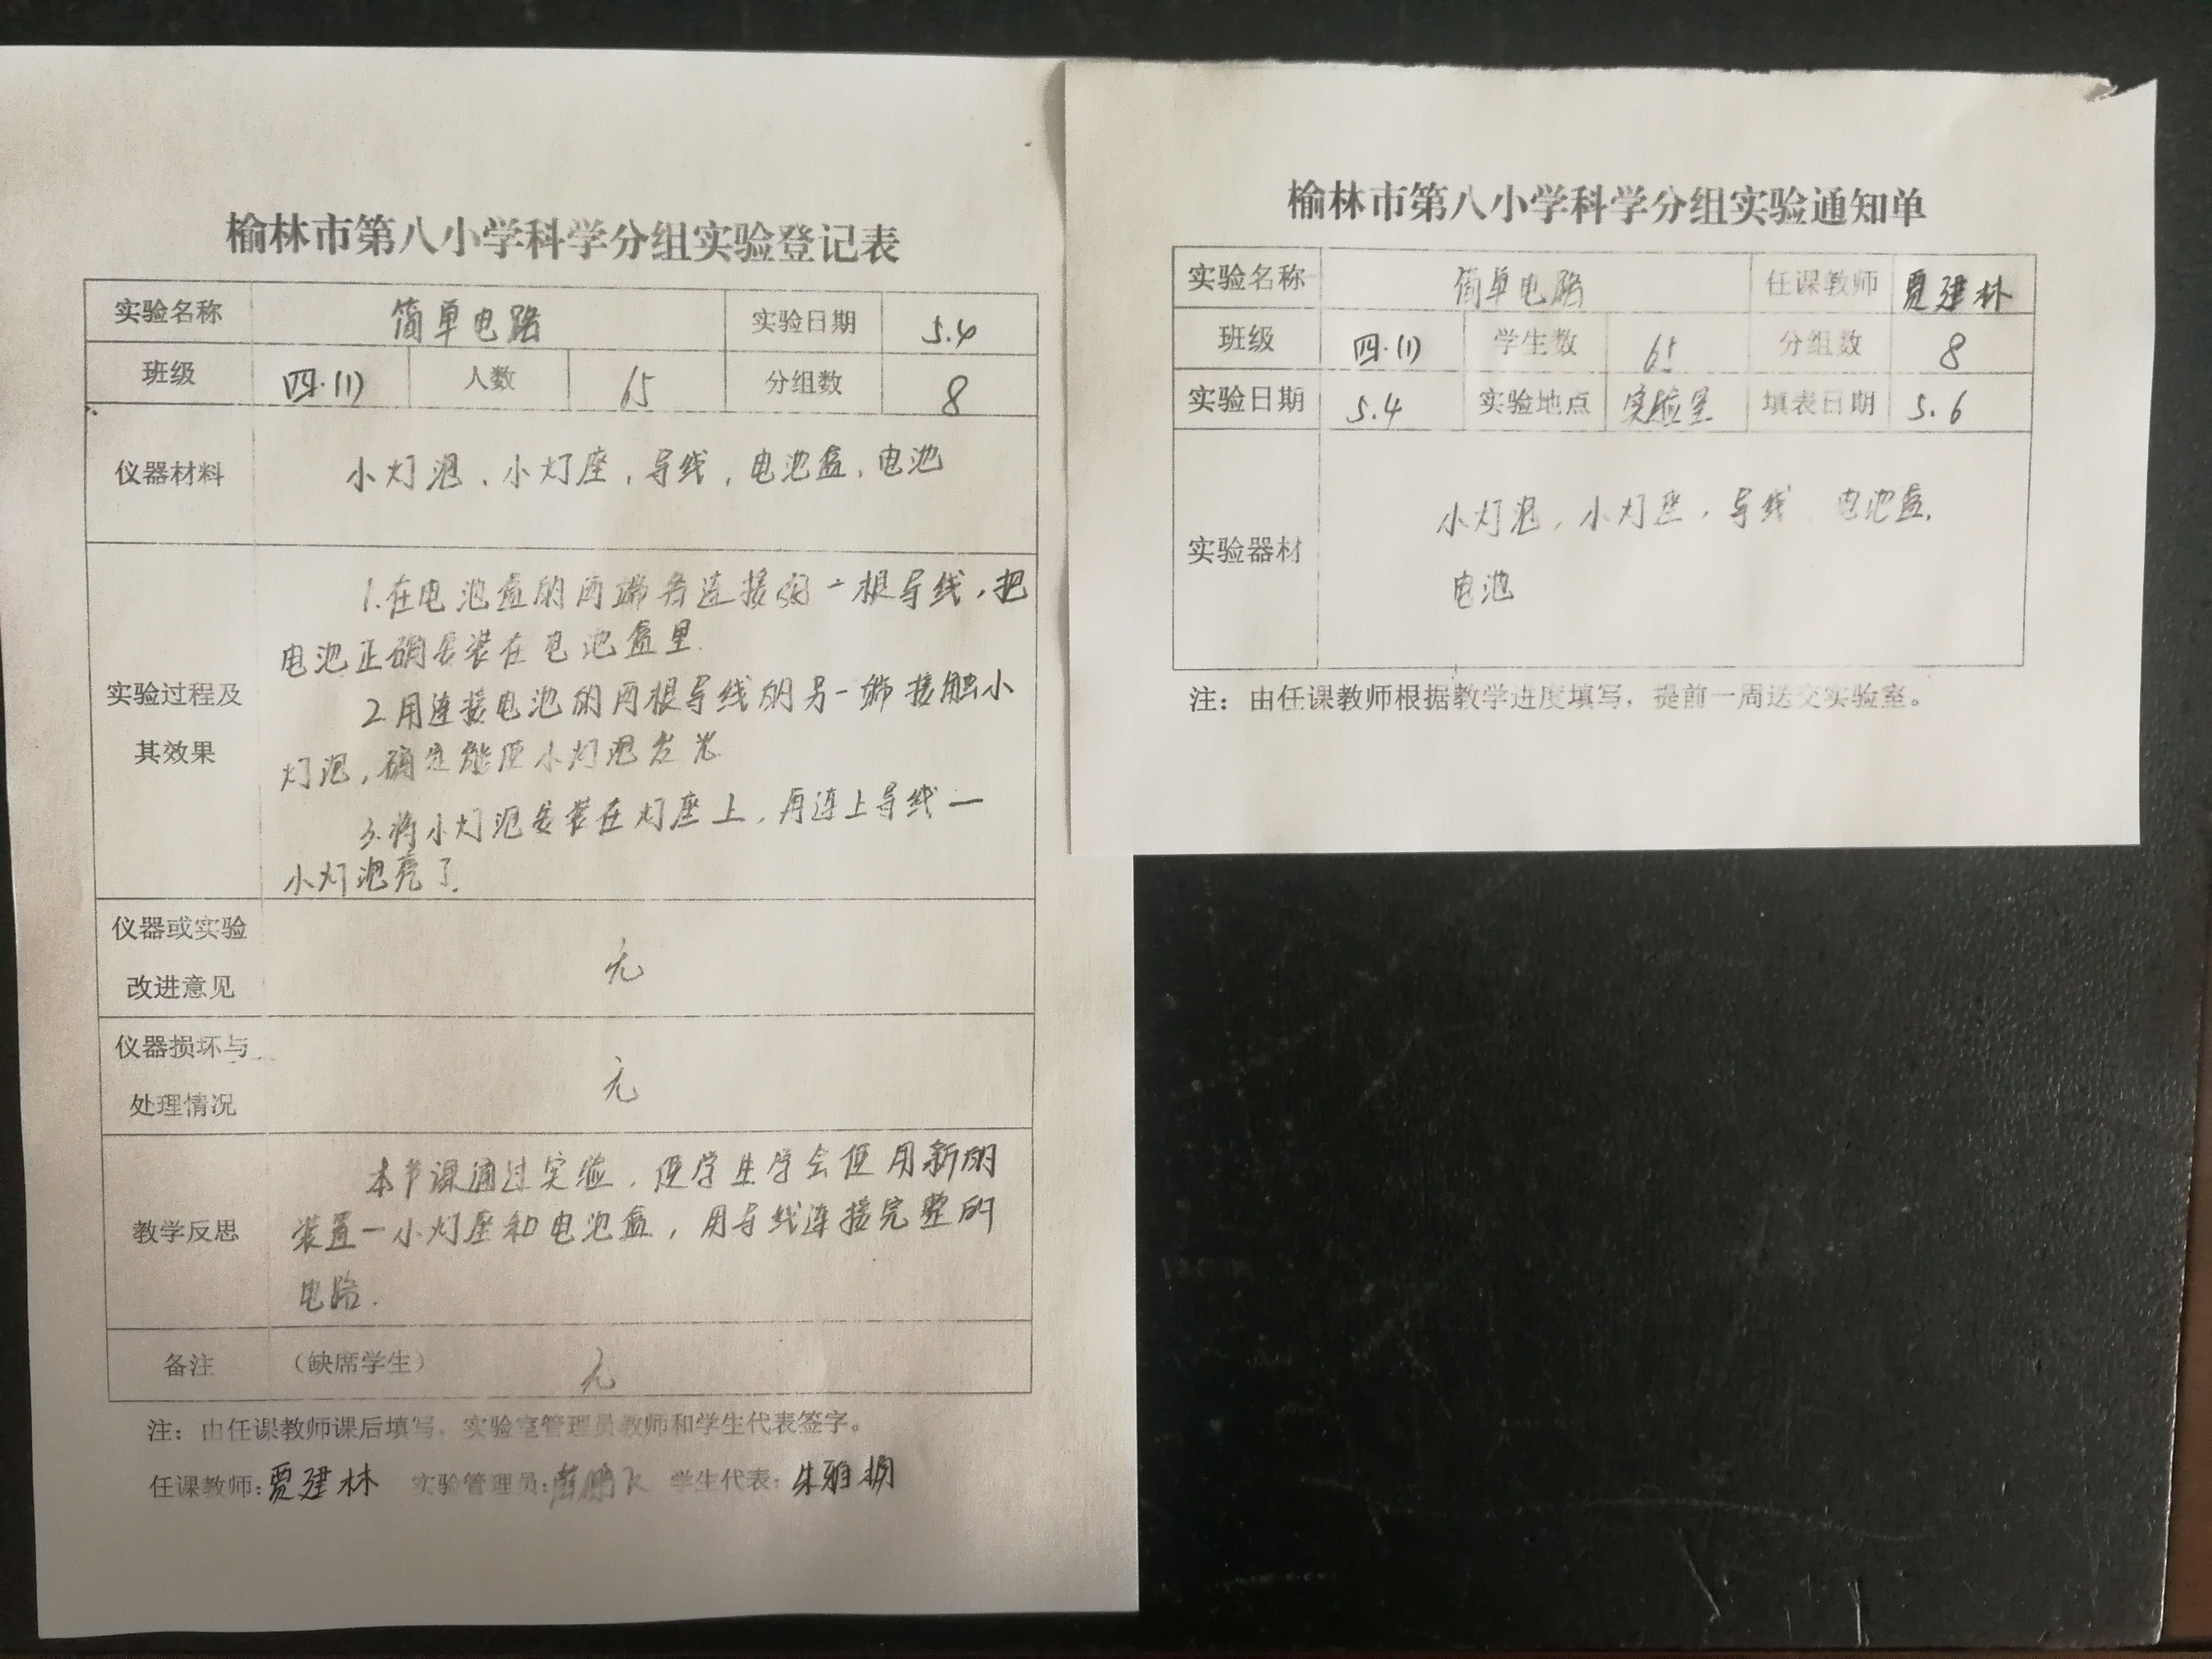 榆林市第八小学科学分组实验登记表
实验名称 简单电路 实验日期 5.4
班级 四·(1) 人数 65 分组数 8
仪器材料 小灯泡、小灯座，导线，电池盒、电池
实验过程及
其效果
1.在电池盒的两端各连接好一根导线，把
电池正确安装在电池盒里.
2.用连接电池的两根导线的另一端接触小
灯泡，确定能使小灯泡发光
3.将小灯泡安装在灯座上，再连上导线一
小灯泡亮了.
仪器或实验
改进意见
无
仪器损坏与
处理情况
无
教学反思
本节课通过实验，使学生学会使用新的
装置一小灯座和电池盒，用导线连接完整的
电路.
备注 （缺席学生） 无
注：由任课教师课后填写，实验室管理员教师和学生代表签字。
任课教师：贾建林 实验管理员： 学生代表：朱雅
榆林市第八小学科学分组实验通知单
实验名称 简单电路 任课教师 贾建林
班级 四·(1) 学生数 65 分组数 8
实验日期 5.4 实验地点 实验室 填表日期 5.6
实验器材
小灯泡，小灯座，导线 电池盒.
电池
注：由任课教师根据教学进度填写，提前一周送交实验室。